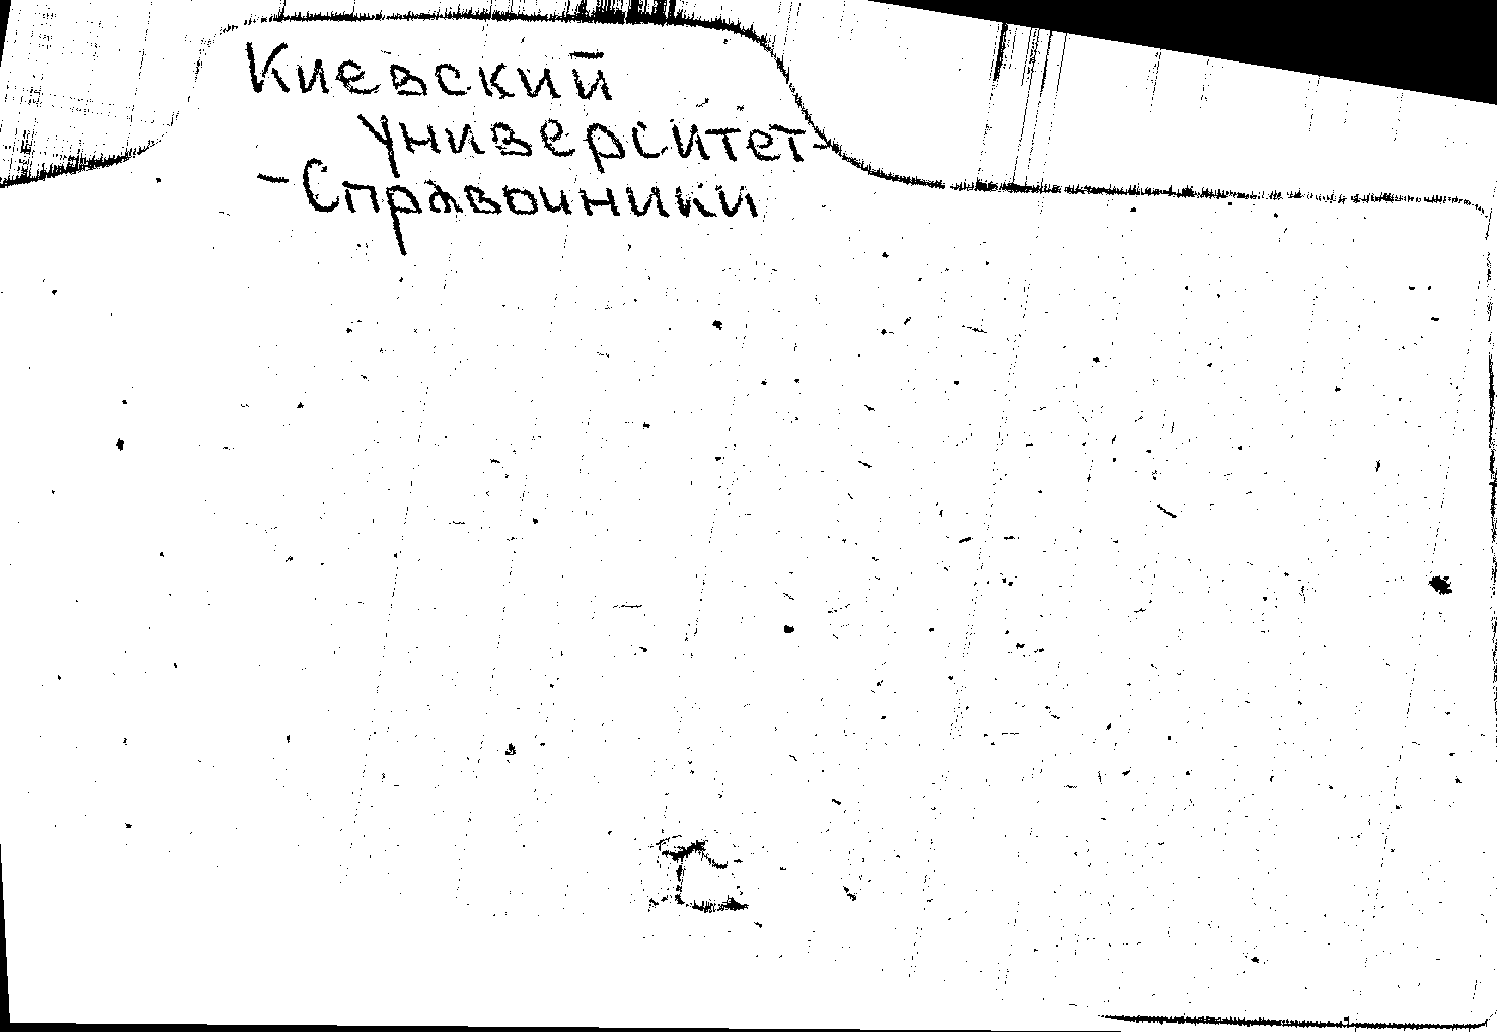 Киевский
университет-
-Справочники